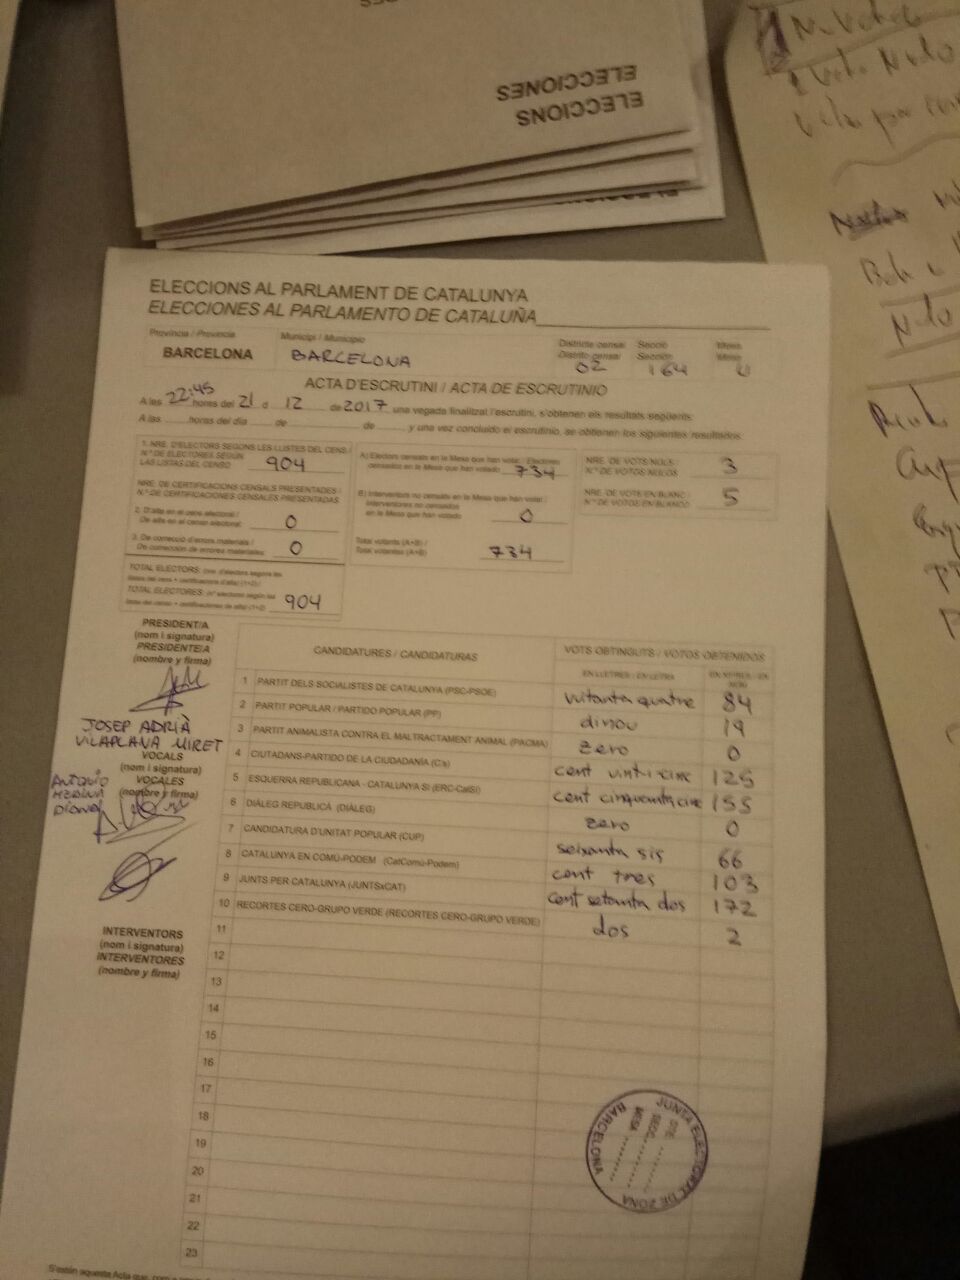 ELECCIONES
ELECCIONS
ELECCIONS AL PARLAMENT DE CATALUNYA
ELECCIONES AL PARLAMENTO DE CATALUÑA
Província / Provincia
Municipi / Municipio
Districte censal
Secció
Mesa
Distrito censal
Sección
Mesa
BARCELONA
BARCELONA
02
164
U
ACTA D'ESCRUTINI / ACTA DE ESCRUTINIO
A les 22:45 hores del 21 d 12 de 2017 una vegada finalitzat l'escrutini, s'obtenen els resultats següents:
A las horas del día de de y una vez concluido el escrutinio, se obtienen los siguientes resultados:
1. NRE. D'ELECTORS SEGONS LES LLISTES DEL CENS /
N.º DE ELECTORES SEGÚN
LAS LISTAS DEL CENSO 904
NRE. DE CERTIFICACIONS CENSALS PRESENTADES /
N.º DE CERTIFICACIONES CENSALES PRESENTADAS
2. D'alta en el cens electoral /
De alta en el censo electoral: 0
3. De correcció d'errors materials /
De corrección de errores materiales: 0
TOTAL ELECTORS: (nre. d'electors segons les
llistes del cens + certificacions d'alta) (1+2) /
TOTAL ELECTORES: (n.º electores según las
listas del censo + certificaciones de alta) (1+2) 904
A) Electors censats en la Mesa que han votat / Electores
censados en la Mesa que han votado 734
B) Interventors no censats en la Mesa que han votat /
Interventores no censados
en la Mesa que han votado 0
Total votants (A+B) /
Total votantes (A+B) 734
NRE. DE VOTS NULS /
N.º DE VOTOS NULOS 3
NRE. DE VOTS EN BLANC /
N.º DE VOTOS EN BLANCO 5
PRESIDENT/A
(nom i signatura)
PRESIDENTE/A
(nombre y firma)
JOSEP ADRIÀ
VILAPLANA MIRET
VOCALS
(nom i signatura)
VOCALES
(nombre y firma)
Antonio
MEDINA
INTERVENTORS
(nom i signatura)
INTERVENTORES
(nombre y firma)
CANDIDATURES / CANDIDATURAS
VOTS OBTINGUTS / VOTOS OBTENIDOS
EN LLETRES / EN LETRA
1 PARTIT DELS SOCIALISTES DE CATALUNYA (PSC-PSOE) vuitanta quatre 84
2 PARTIT POPULAR / PARTIDO POPULAR (PP) dinou 19
3 PARTIT ANIMALISTA CONTRA EL MALTRACTAMENT ANIMAL (PACMA) zero 0
4 CIUTADANS-PARTIDO DE LA CIUDADANÍA (C's) cent vint-i-cinc 125
5 ESQUERRA REPUBLICANA - CATALUNYA SÍ (ERC-CatSí) cent cinquanta cinc 155
6 DIÀLEG REPUBLICÀ (DIÀLEG) zero 0
7 CANDIDATURA D'UNITAT POPULAR (CUP) seixanta sis 66
8 CATALUNYA EN COMÚ-PODEM (CatComú-Podem) cent tres 103
9 JUNTS PER CATALUNYA (JUNTSxCAT) cent setanta dos 172
10 RECORTES CERO-GRUPO VERDE (RECORTES CERO-GRUPO VERDE) dos 2
11
12
13
14
15
16
17
18
19
20
21
22
23
JUNTA ELECTORAL DE ZONA
BARCELONA
DTE.
SECC.
MESA